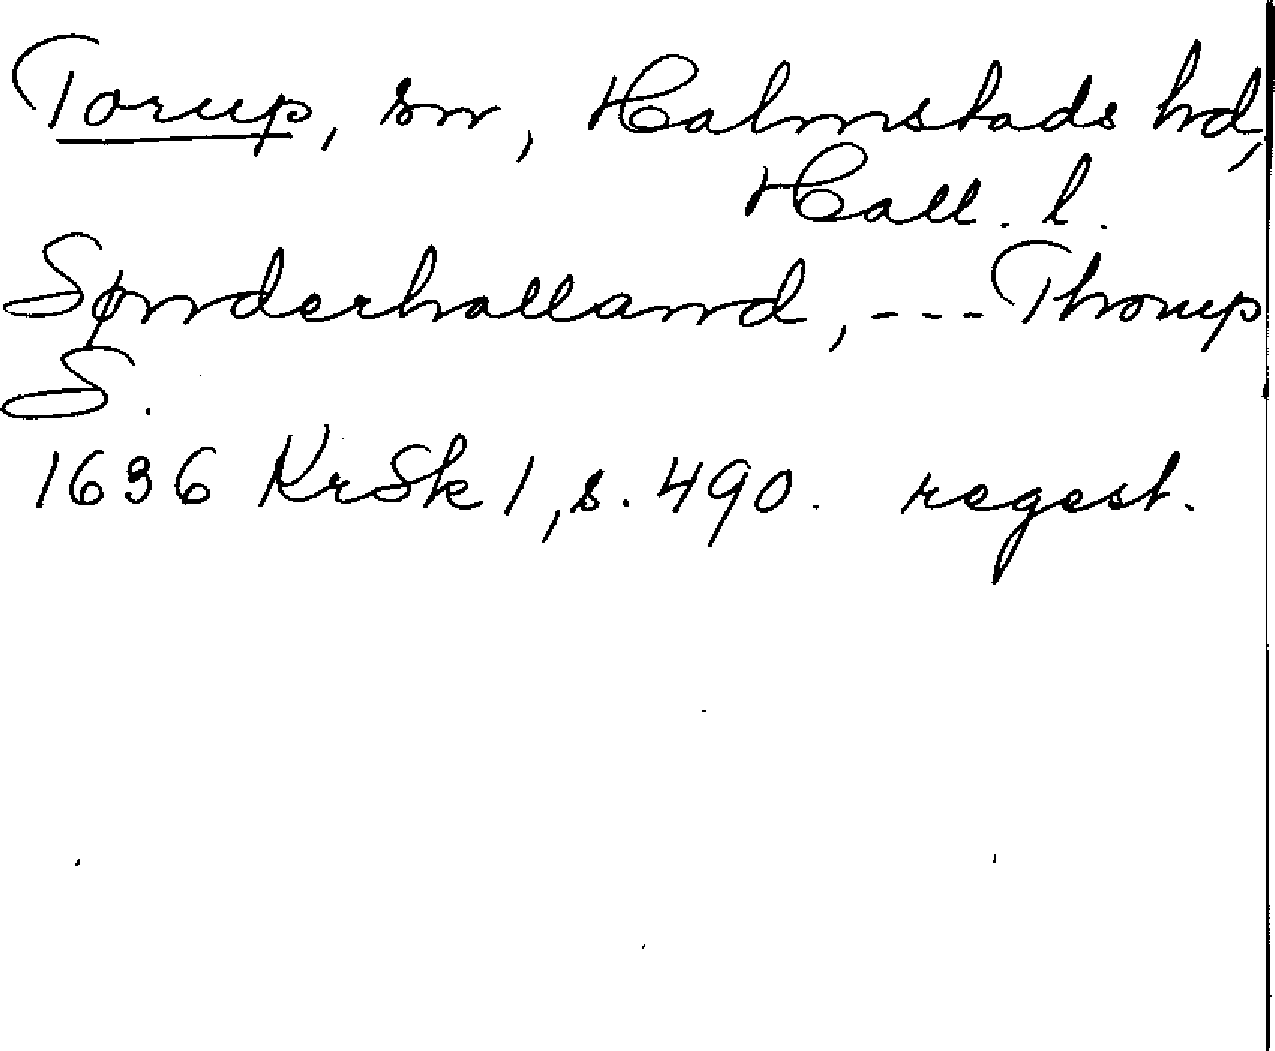 Torup, sn, Halmstads hd,
Hall. l.
Sønderhalland, --- Thorup
S.
1636 KrSk 1, s. 490. regest.